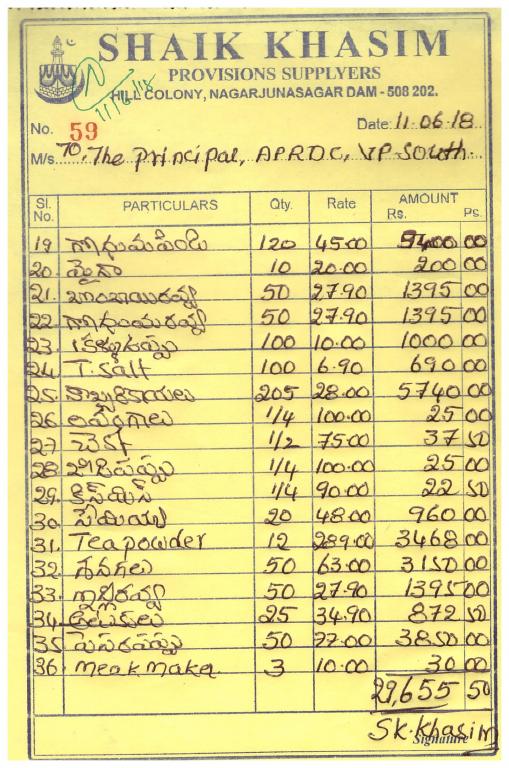 SHAIK KHASIM
PROVISIONS SUPPLYERS
HILL COLONY, NAGARJUNASAGAR DAM - 508 202.
11/6/18
No. 59 Date: 11.06.18
M/s. To, The principal, APRDC, VP-South.
Sl. No. PARTICULARS Qty. Rate AMOUNT Rs. Ps.
19 గోధుమపిండి 120 45.00 5400 00
20. మైదా 10 20.00 200 00
21. బొంబాయిరవ్వ 50 27.90 1395 00
22. గోధుమరవ్వ 50 27.90 1395 00
23. కళ్ళుఉప్పు 100 10.00 1000 00
24. T. Salt 100 6.90 690 00
25. కొబ్బరికాయలు 205 28.00 5740 00
26. లవంగాలు 1/4 100.00 25 00
27. చెక్క 1/2 75.00 37 50
28. జీడిపప్పు 1/4 100.00 25 00
29. కిస్మిస్ 1/4 90.00 22 50
30. సేమియా 20 48.00 960 00
31. Tea powder 12 289.00 3468 00
32. శనగలు 50 63.00 3150 00
33. ఇడ్లీరవ్వ 50 27.90 1395 00
34. అటుకులు 25 34.90 872 50
35 పెసరపప్పు 50 77.00 3850 00
36. meak maker 3 10.00 30 00
29,655 50
SK. Khasim
Signature